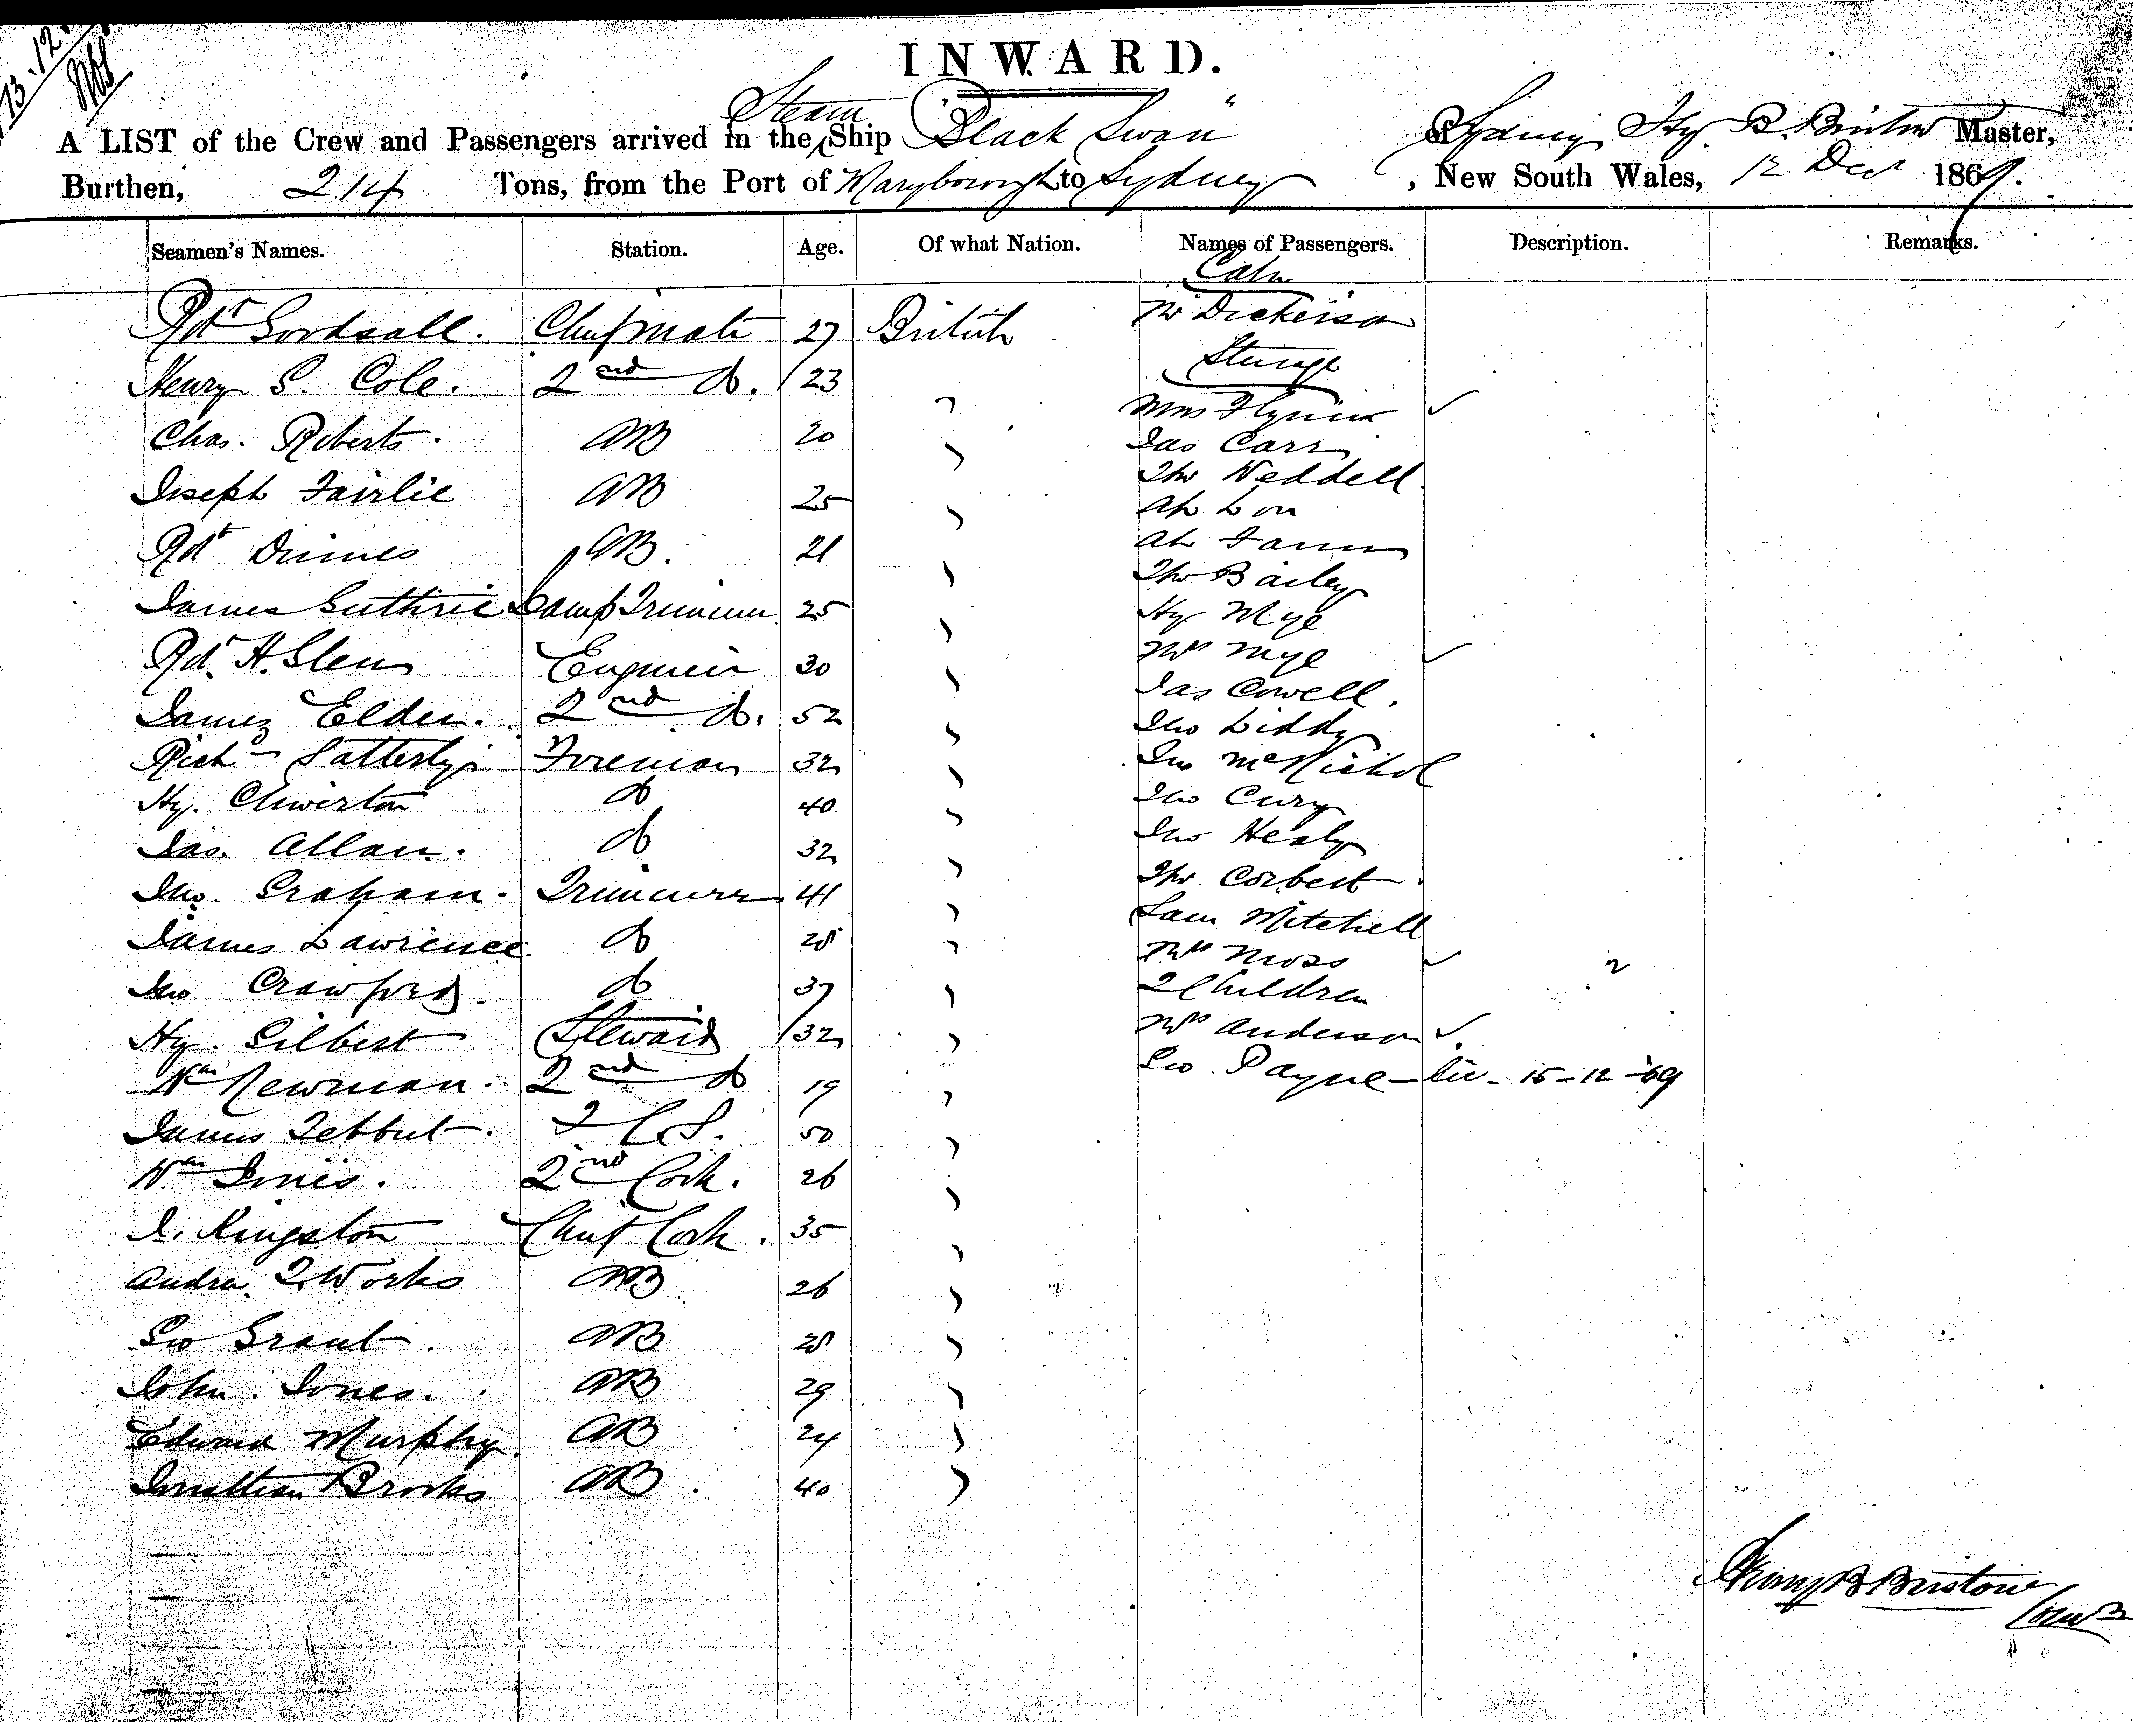 13.12.
INWARD.
A LIST of the Crew and Passengers arrived in the Steam Ship "Black Swan" of Sydney, Hy. B. Bristow Master,
Burthen, 214 Tons, from the Port of Maryborough to Sydney, New South Wales, 12 Decr 1869.
Seamen's Names. Station. Age. Of what Nation. Names of Passengers. Description. Remarks.
Cabin
Rdt Goodsall. Chief mate 27 British Mr Dickerson
Steerage
Henry S. Cole. 2nd do. 23 "
Mrs Flynn ✓
Chas. Roberts. AB 20 "
Jas Carr
Thos Weddell
Joseph Fairlie AB 25 "
Ah Lon
Rdt Dimes AB. 21 "
Ah
Thos Bailey
James Guthrie Lamp Trimmer 25 "
Hy Mye
Rdt H. Glen Engineer 30 "
Mrs Mye ✓
James Elder. 2nd do. 52 "
Jas Cowell.
Jno Liddy
Richd Satterly Foreman 32 "
Jno McNichol
Hy. Chiverton do 40 "
Jno Cury
Jas. Allan. do 32 "
Jno Healy
Jno. Graham. Trimmer 41 "
Thos Corbett
Sam Mitchell
James Lawrence do 28 "
Mrs Moss ✓ 2
Jno Crawford. do 37 "
2 Children
Hy. Gilbert Steward 32 "
Mrs Anderson ✓
Wm Newman. 2nd do 19 "
Geo Payne - 15-12-69
James Tebbut. F.C.S. 50 "
Wm Jones. 2nd Cook. 26 "
J. Kingston Chief Cook. 35 "
Andrew Works AB 26 "
Geo Grant AB 28 "
John Jones. AB 29 "
Edward Murphy AB 24 "
Jonathan Brooks AB. 40 "
Henry B Bristow
Comr